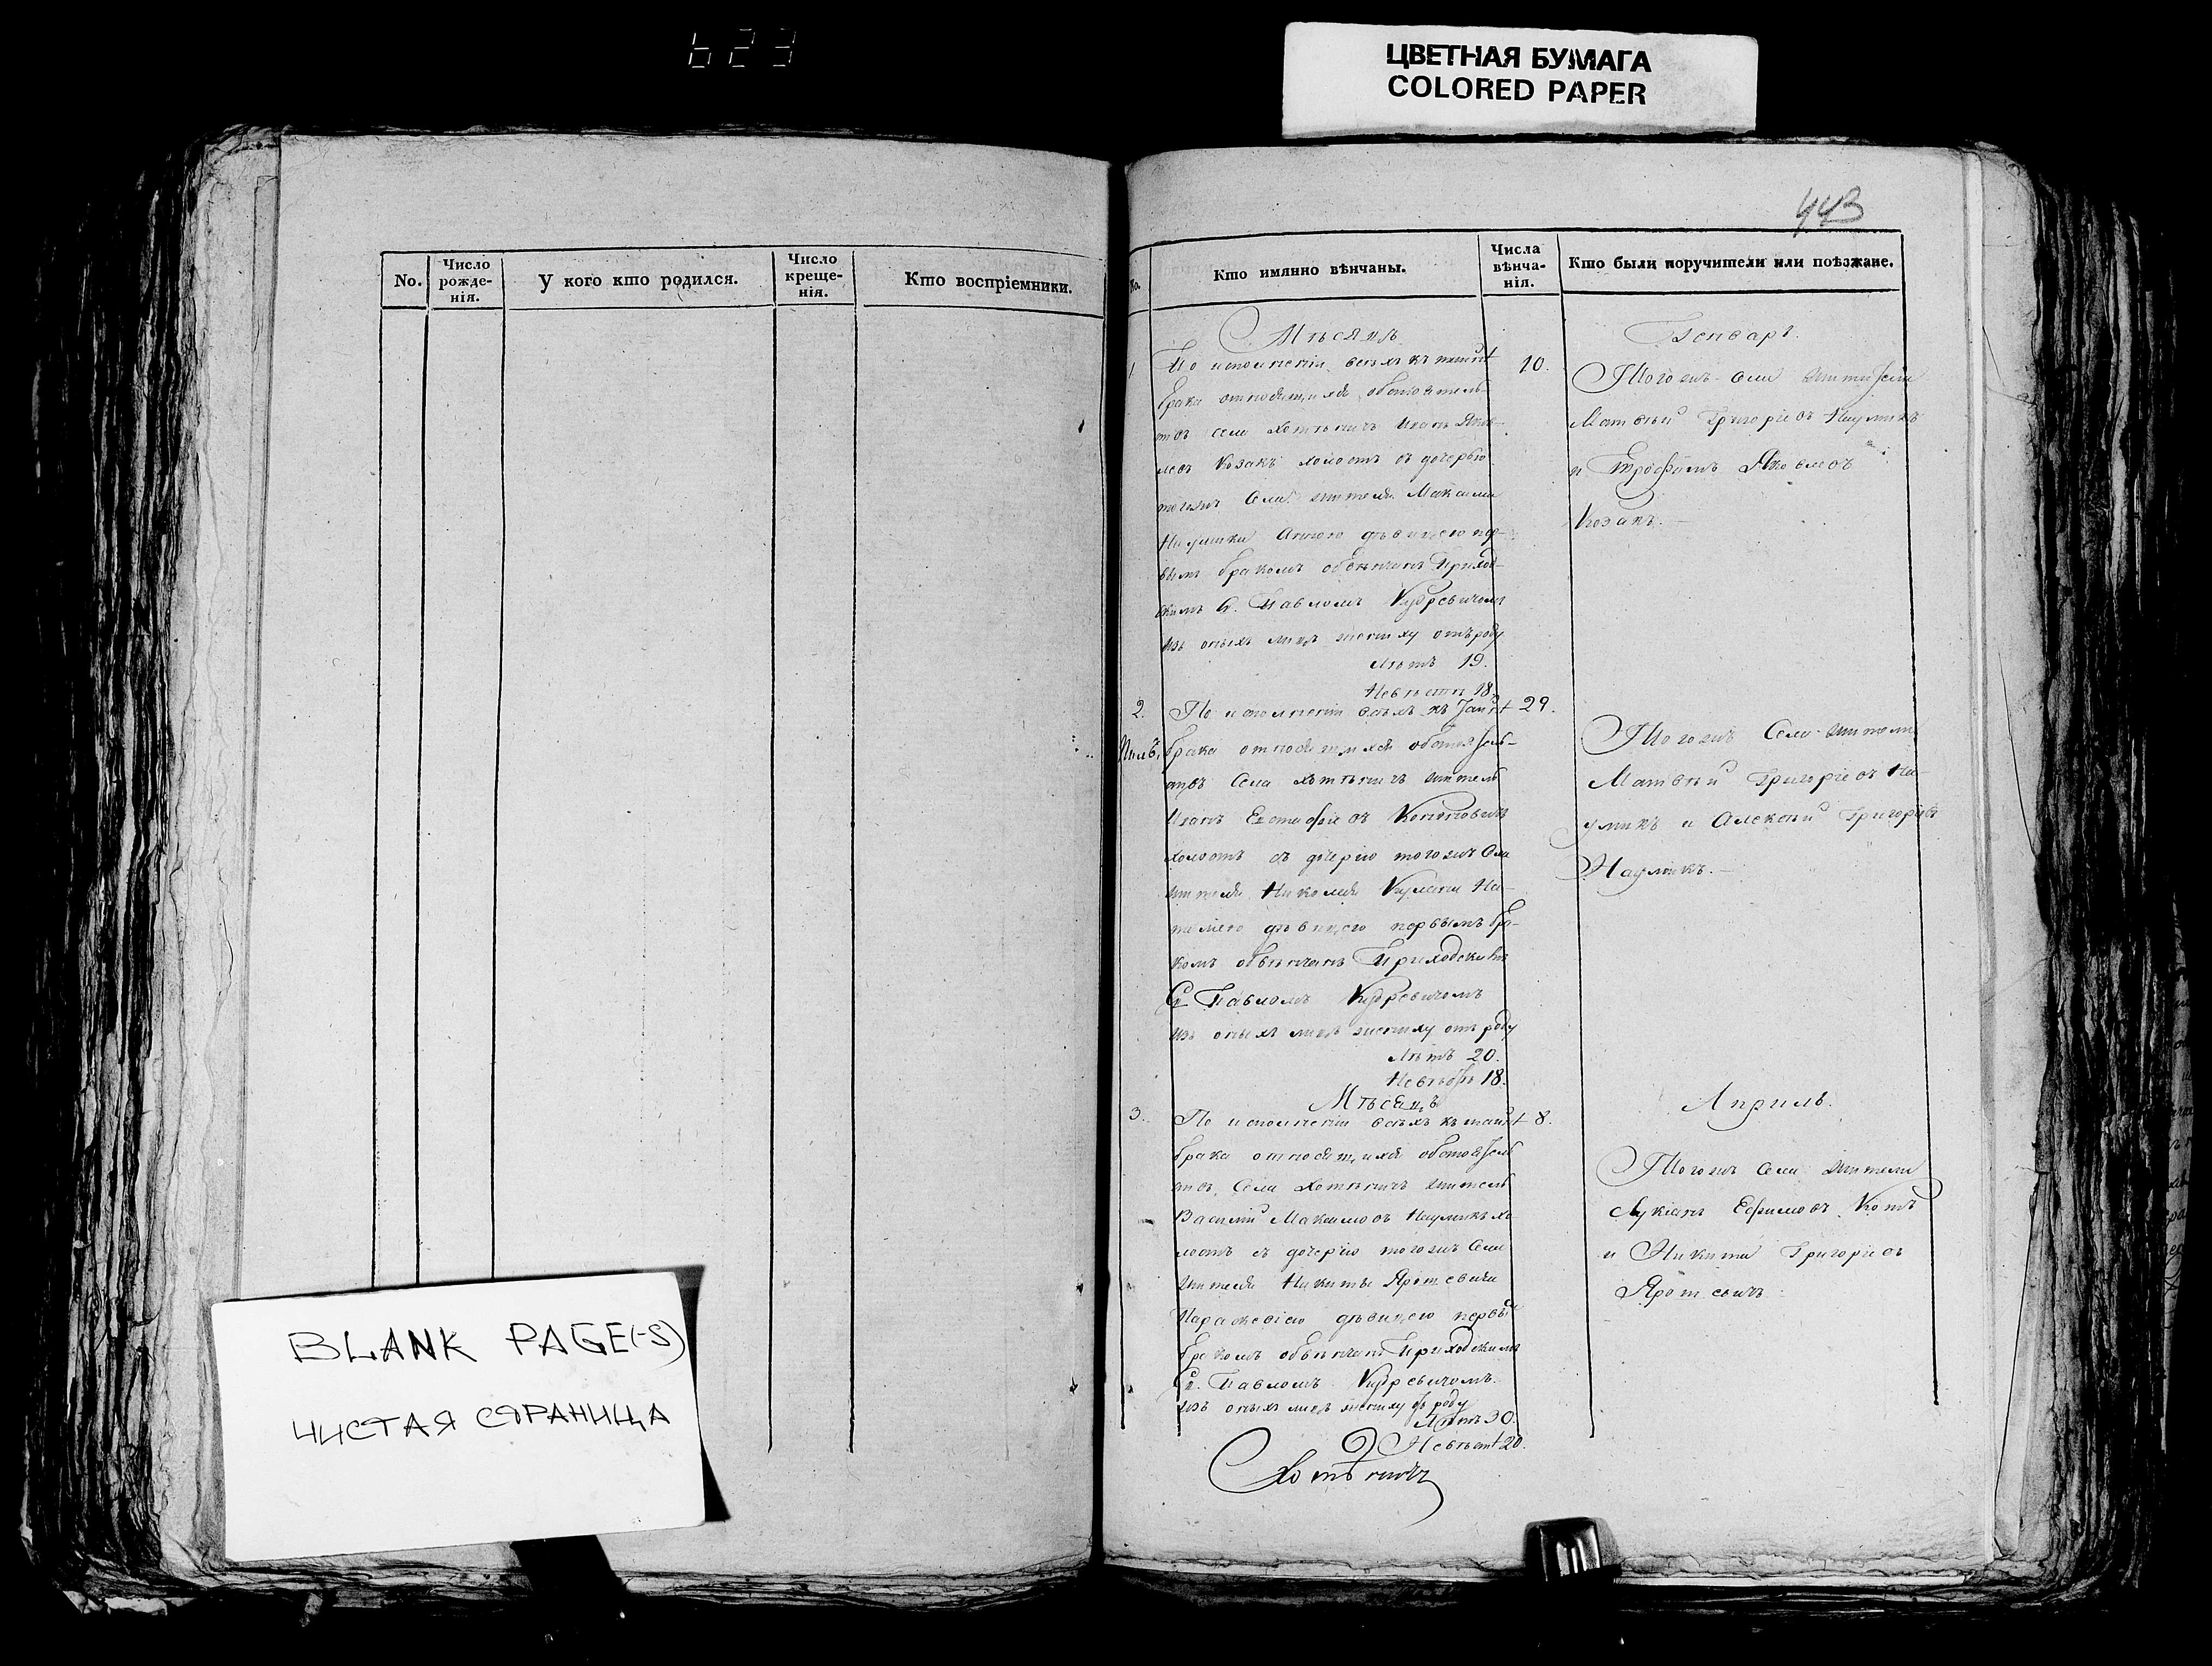 623
ЦВЕТНАЯ БУМАГА
COLORED PAPER
443
No.
Число рожде-нія.
У кого кто родился.
Число креще-нія.
Кто воспріемники.
No.
Кто имянно вѣнчаны.
Числа вѣнча-нія.
Кто были поручители или поѣзжане.
Мѣсяцъ
Генварь.
1
По исполненіи всѣхъ къ
10.
брака относящихся обстоятель-
ствъ села Хотѣничъ Иванъ Яков-
левъ Козакъ холостъ съ дочерью
тогожъ Села жителя Максима
Наумика Анною дѣвицею пер-
вымъ бракомъ обвѣнчанъ Приход-
скимъ С. Павломъ Кудревичомъ
изъ оныхъ лицъ жениху отъ роду
лѣтъ 19.
Невѣстѣ 18.
Тогожъ Села жители
Матвѣй Григоріевъ Наумикъ
и Трофимъ Яковлевъ
Козакъ.
2.
По исполненіи всѣхъ къ
29.
брака относящихся обстоятель-
ствъ Села Хотѣничъ житель
Иванъ Евстафіевъ Кононовичъ
холостъ съ дочерію тогожъ Села
жителя Николая
дѣвицею первымъ бра-
комъ обвѣнчанъ Приходскимъ
С. Павломъ Кудревичомъ
изъ оныхъ лицъ жениху отъ роду
лѣтъ 20.
Невѣстѣ 18.
Тогожъ Села жители
Матвѣй Григоріевъ На-
умикъ и Алексѣй Григорьевъ
Наумикъ.
Мѣсяцъ
Априль.
3.
По исполненіи всѣхъ къ
8.
брака относящихся обстоятель
ствъ Села Хотѣничъ житель
Василій Максимовъ Наумикъ хо
лостъ съ дочерію тогожъ Села
жителя Никиты Яротевича
Параскевіею дѣвицею первым
бракомъ обвѣнчанъ Приходскимъ
С. Павломъ Кудревичомъ.
изъ оныхъ лицъ жениху отъ роду
Лѣтъ 30.
Невѣстѣ 20.
Тогожъ Села жители
Лукіанъ Ефимовъ Котъ
и Никита Григоріевъ
Яротевичъ
Хотѣничъ
BLANK PAGE(-S)
ЧИСТАЯ СТРАНИЦА